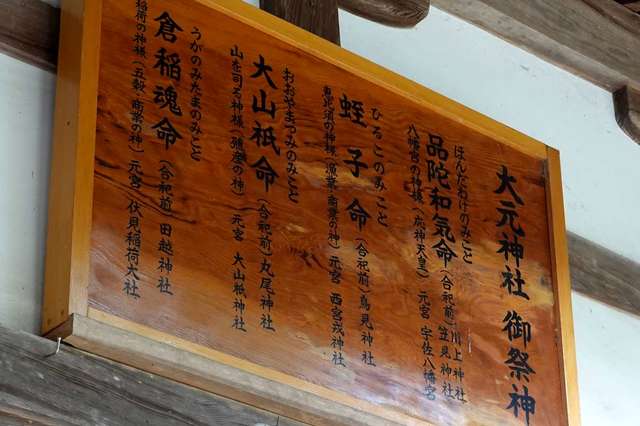 大元神社 御祭神
ほんだわけのみこと
品陀和気命 (合祀前) 川上神社 笠見神社
八幡宮の神様 (応神天皇) 元宮 宇佐八幡宮
ひるこのみこと
蛭子命 (合祀前) 鳥見神社
恵比須の神様 (漁業・商業の神) 元宮 西宮戎神社
おおやまつみのみこと
大山祇命 (合祀前) 丸尾神社
山を司る神様 (殖産の神) 元宮 大山祇神社
うがのみたまのみこと
倉稲魂命 (合祀前) 田越神社
稲荷の神様 (五穀・商業の神) 元宮 伏見稲荷大社